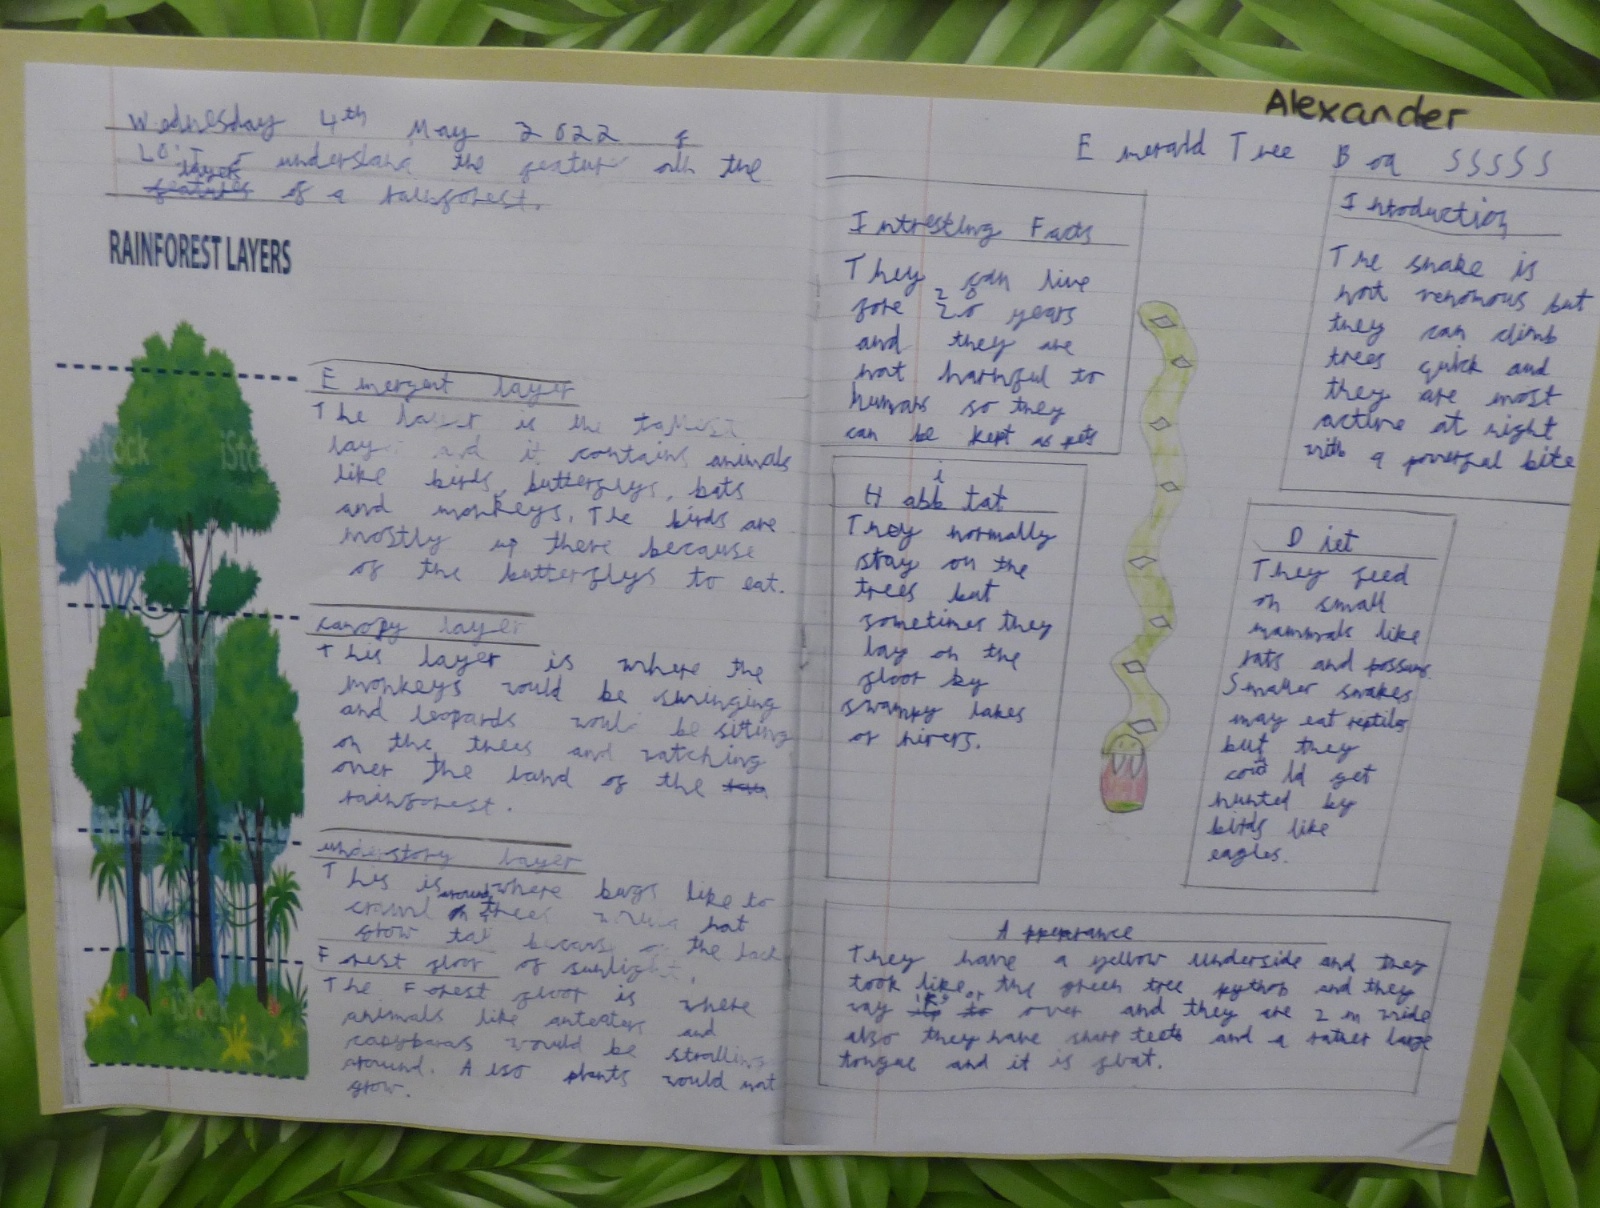 Alexander
Wednesday 4th May 2022
LO: understand the the
layers
features of a rainforest.
RAINFOREST LAYERS
iStock
Emergent layer
The is the tallest
and it contains animals
like birds, butterflys, bats
and monkeys. The birds are
mostly up there because
of the butterflys to eat.
canopy layer
This layer is where the
monkeys would be swinging
and leopards would be sitting
on the trees and watching
over the land of the
rainforest.
understory layer
This is where bugs like to
crawl around trees not
grow because the lack
of sunlight.
Forest floor
The Forest floor is where
animals like anteaters and
capybaras would be
around. Also plants would not
grow.
Emerald Tree Boa SSSSS
Intresting Facts
They can live
fore 20 years
and they are
not harmful to
humans so they
can be kept as pets
Introduction
The snake is
not venomous but
they can climb
trees quick and
they are most
active at night
with a powerful bite
Habbitat
They normally
stay on the
trees but
sometimes they
lay on the
floor by
swampy lakes
or rivers.
Diet
They feed
on small
mammals like
rats and possums.
Smaller snakes
may eat reptiles
but they
could get
hunted by
birds like
eagles.
Apperarance
They have a yellow underside and they
look like the green tree python and they
over and they are 2 m wide
also they have sharp teeth and a rather large
tongue and it is flat.